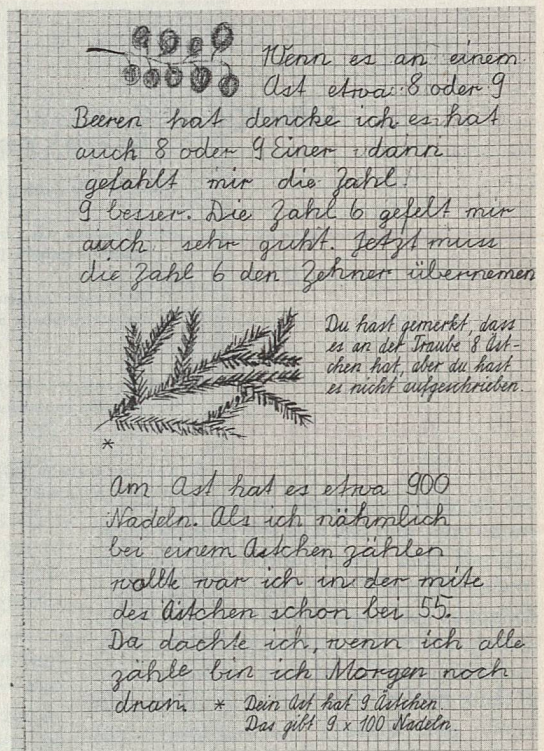 Wenn es an einem
Ast etwa 8 oder 9
Beeren hat dencke ich es hat
auch 8 oder 9 Einer dann
gefahlt mir die Zahl
9 besser. Die Zahl 6 gefelt mir
auch sehr guht. Jetzt muss
die Zahl 6 den Zehner übernemen
Du hast gemerkt, dass
es an der Traube 8 Äst-
chen hat, aber du hast
es nicht aufgeschrieben.
*
Am Ast hat es etwa 900
Nadeln. Als ich nähmlich
bei einem Ästchen zählen
wollte war ich in der mite
des Ästchen schon bei 55.
Da dachte ich, wenn ich alle
zähle bin ich Morgen noch
dran. * Dein Ast hat 9 Ästchen.
Das gibt 9 x 100 Nadeln.